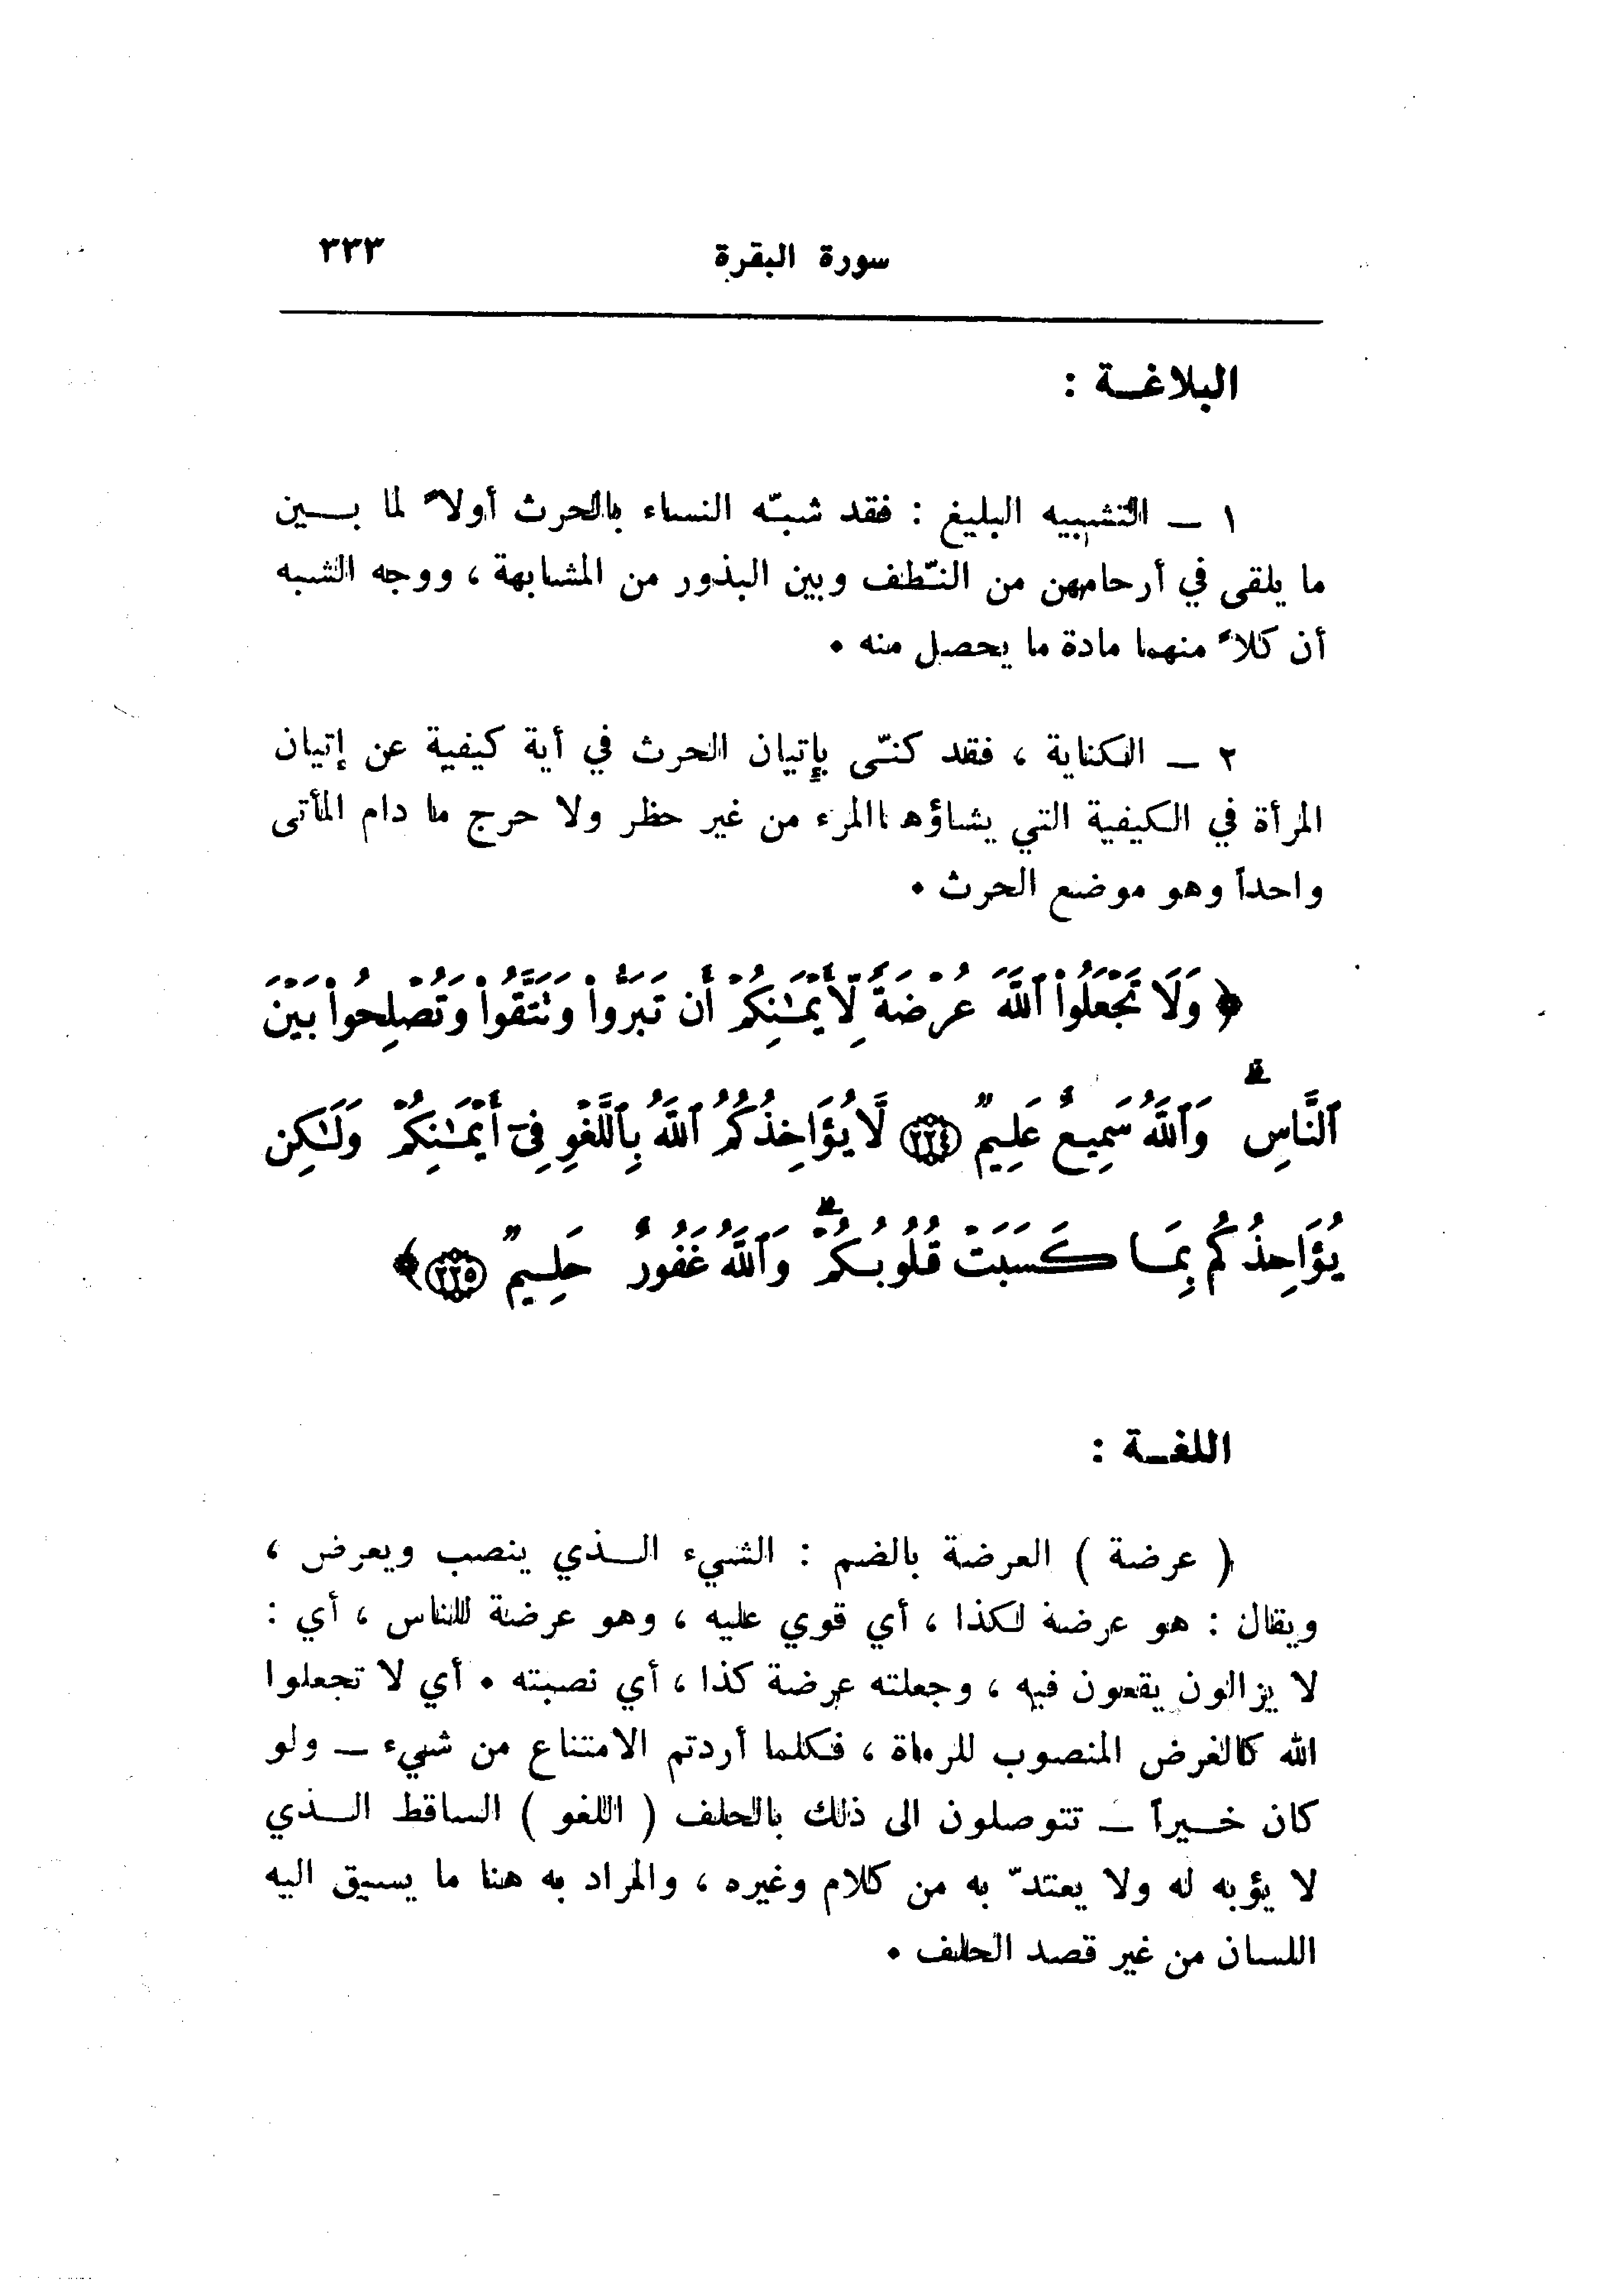 سورة البقرة ٣٣٣
البلاغـــة :
١ ــ التشبيه البليغ : فقد شبّه النساء بالحرث أولاً لما بـــين
ما يلقى في أرحامهن من النّطف وبين البذور من المشابهة ، ووجه الشبه
أن كلاً منهما مادة ما يحصل منه •
٢ ــ الكناية ، فقد كنّى بإتيان الحرث في أية كيفية عن إتيان
المرأة في الكيفية التي يشاؤها المرء من غير حظر ولا حرج ما دام المأتى
واحداً وهو موضع الحرث •
﴿ وَلَا تَجْعَلُوا۟ ٱللَّهَ عُرْضَةً لِّأَيْمَـٰنِكُمْ أَن تَبَرُّوا۟ وَتَتَّقُوا۟ وَتُصْلِحُوا۟ بَيْنَ
ٱلنَّاسِ ۗ وَٱللَّهُ سَمِيعٌ عَلِيمٌ ﴿٢٢٤﴾ لَّا يُؤَاخِذُكُمُ ٱللَّهُ بِٱللَّغْوِ فِىٓ أَيْمَـٰنِكُمْ وَلَـٰكِن
يُؤَاخِذُكُم بِمَا كَسَبَتْ قُلُوبُكُمْ ۗ وَٱللَّهُ غَفُورٌ حَلِيمٌ ﴿٢٢٥﴾ ﴾
اللغـــة :
( عرضة ) العرضة بالضم : الشيء الـــذي ينصب ويعرض ،
ويقال : هو عرضة لكذا ، أي قوي عليه ، وهو عرضة للناس ، أي :
لا يزالون يقعون فيه ، وجعلته عرضة كذا ، أي نصبته • أي لا تجعلوا
الله كالغرض المنصوب للرماة ، فكلما أردتم الامتناع من شيء ــ ولو
كان خـــيراً ــ تتوصلون الى ذلك بالحلف ( اللغو ) الساقط الـــذي
لا يؤبه له ولا يعتدّ به من كلام وغيره ، والمراد به هنا ما يسبق اليه
اللسان من غير قصد الحلف •